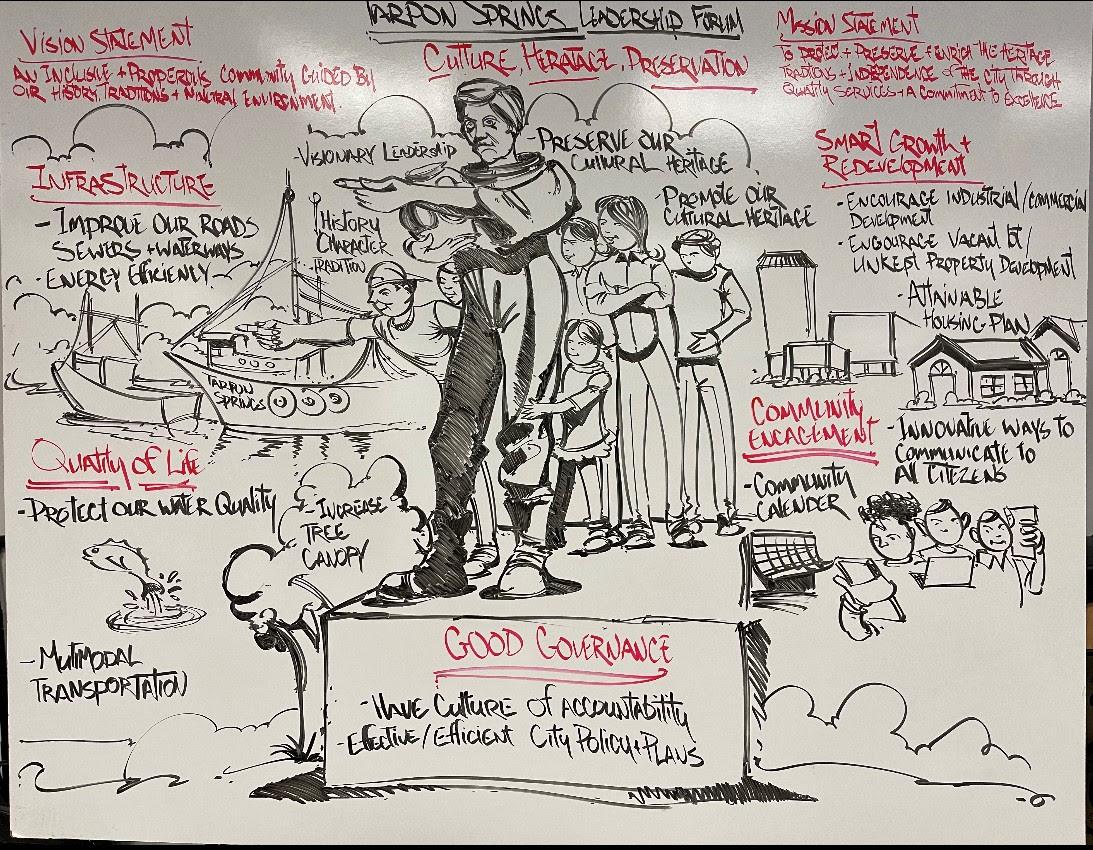 TARPON SPRINGS LEADERSHIP FORUM
CULTURE, HERITAGE, PRESERVATION
VISION STATEMENT
AN INCLUSIVE + PROPEROUS COMMUNITY GUIDED BY
OUR HISTORY, TRADITIONS + NATURAL ENVIRONMENT.
MISSION STATEMENT
TO PROTECT + PRESERVE + ENRICH THE HERITAGE
TRADITIONS + INDEPENDENCE OF THE CITY THROUGH
QUALITY SERVICES + A COMMITMENT TO EXCELLENCE
-VISIONARY LEADERSHIP
-PRESERVE OUR
CULTURAL HERITAGE
-PROMOTE OUR
CULTURAL HERITAGE
HISTORY
CHARACTER
TRADITION
INFRASTRUCTURE
-IMPROVE OUR ROADS
SEWERS + WATERWAYS
-ENERGY EFFICIENCY
TARPON
SPRINGS
SMART GROWTH +
REDEVELOPMENT
-ENCOURAGE INDUSTRIAL/COMMERCIAL
DEVELOPMENT
-ENCOURAGE VACANT LOT/
UNKEPT PROPERTY DEVELOPMENT
-ATTAINABLE
HOUSING PLAN
QUALITY OF LIFE
-PROTECT OUR WATER QUALITY
-INCREASE
TREE
CANOPY
-MUTIMODAL
TRANSPORTATION
COMMUNITY
ENGAGEMENT
-INNOVATIVE WAYS TO
COMMUNICATE TO
ALL CITIZENS
-COMMUNITY
CALENDER
GOOD GOVERNANCE
-HAVE CULTURE OF ACCOUNTABILITY
-EFFECTIVE/EFFICIENT CITY POLICY + PLANS